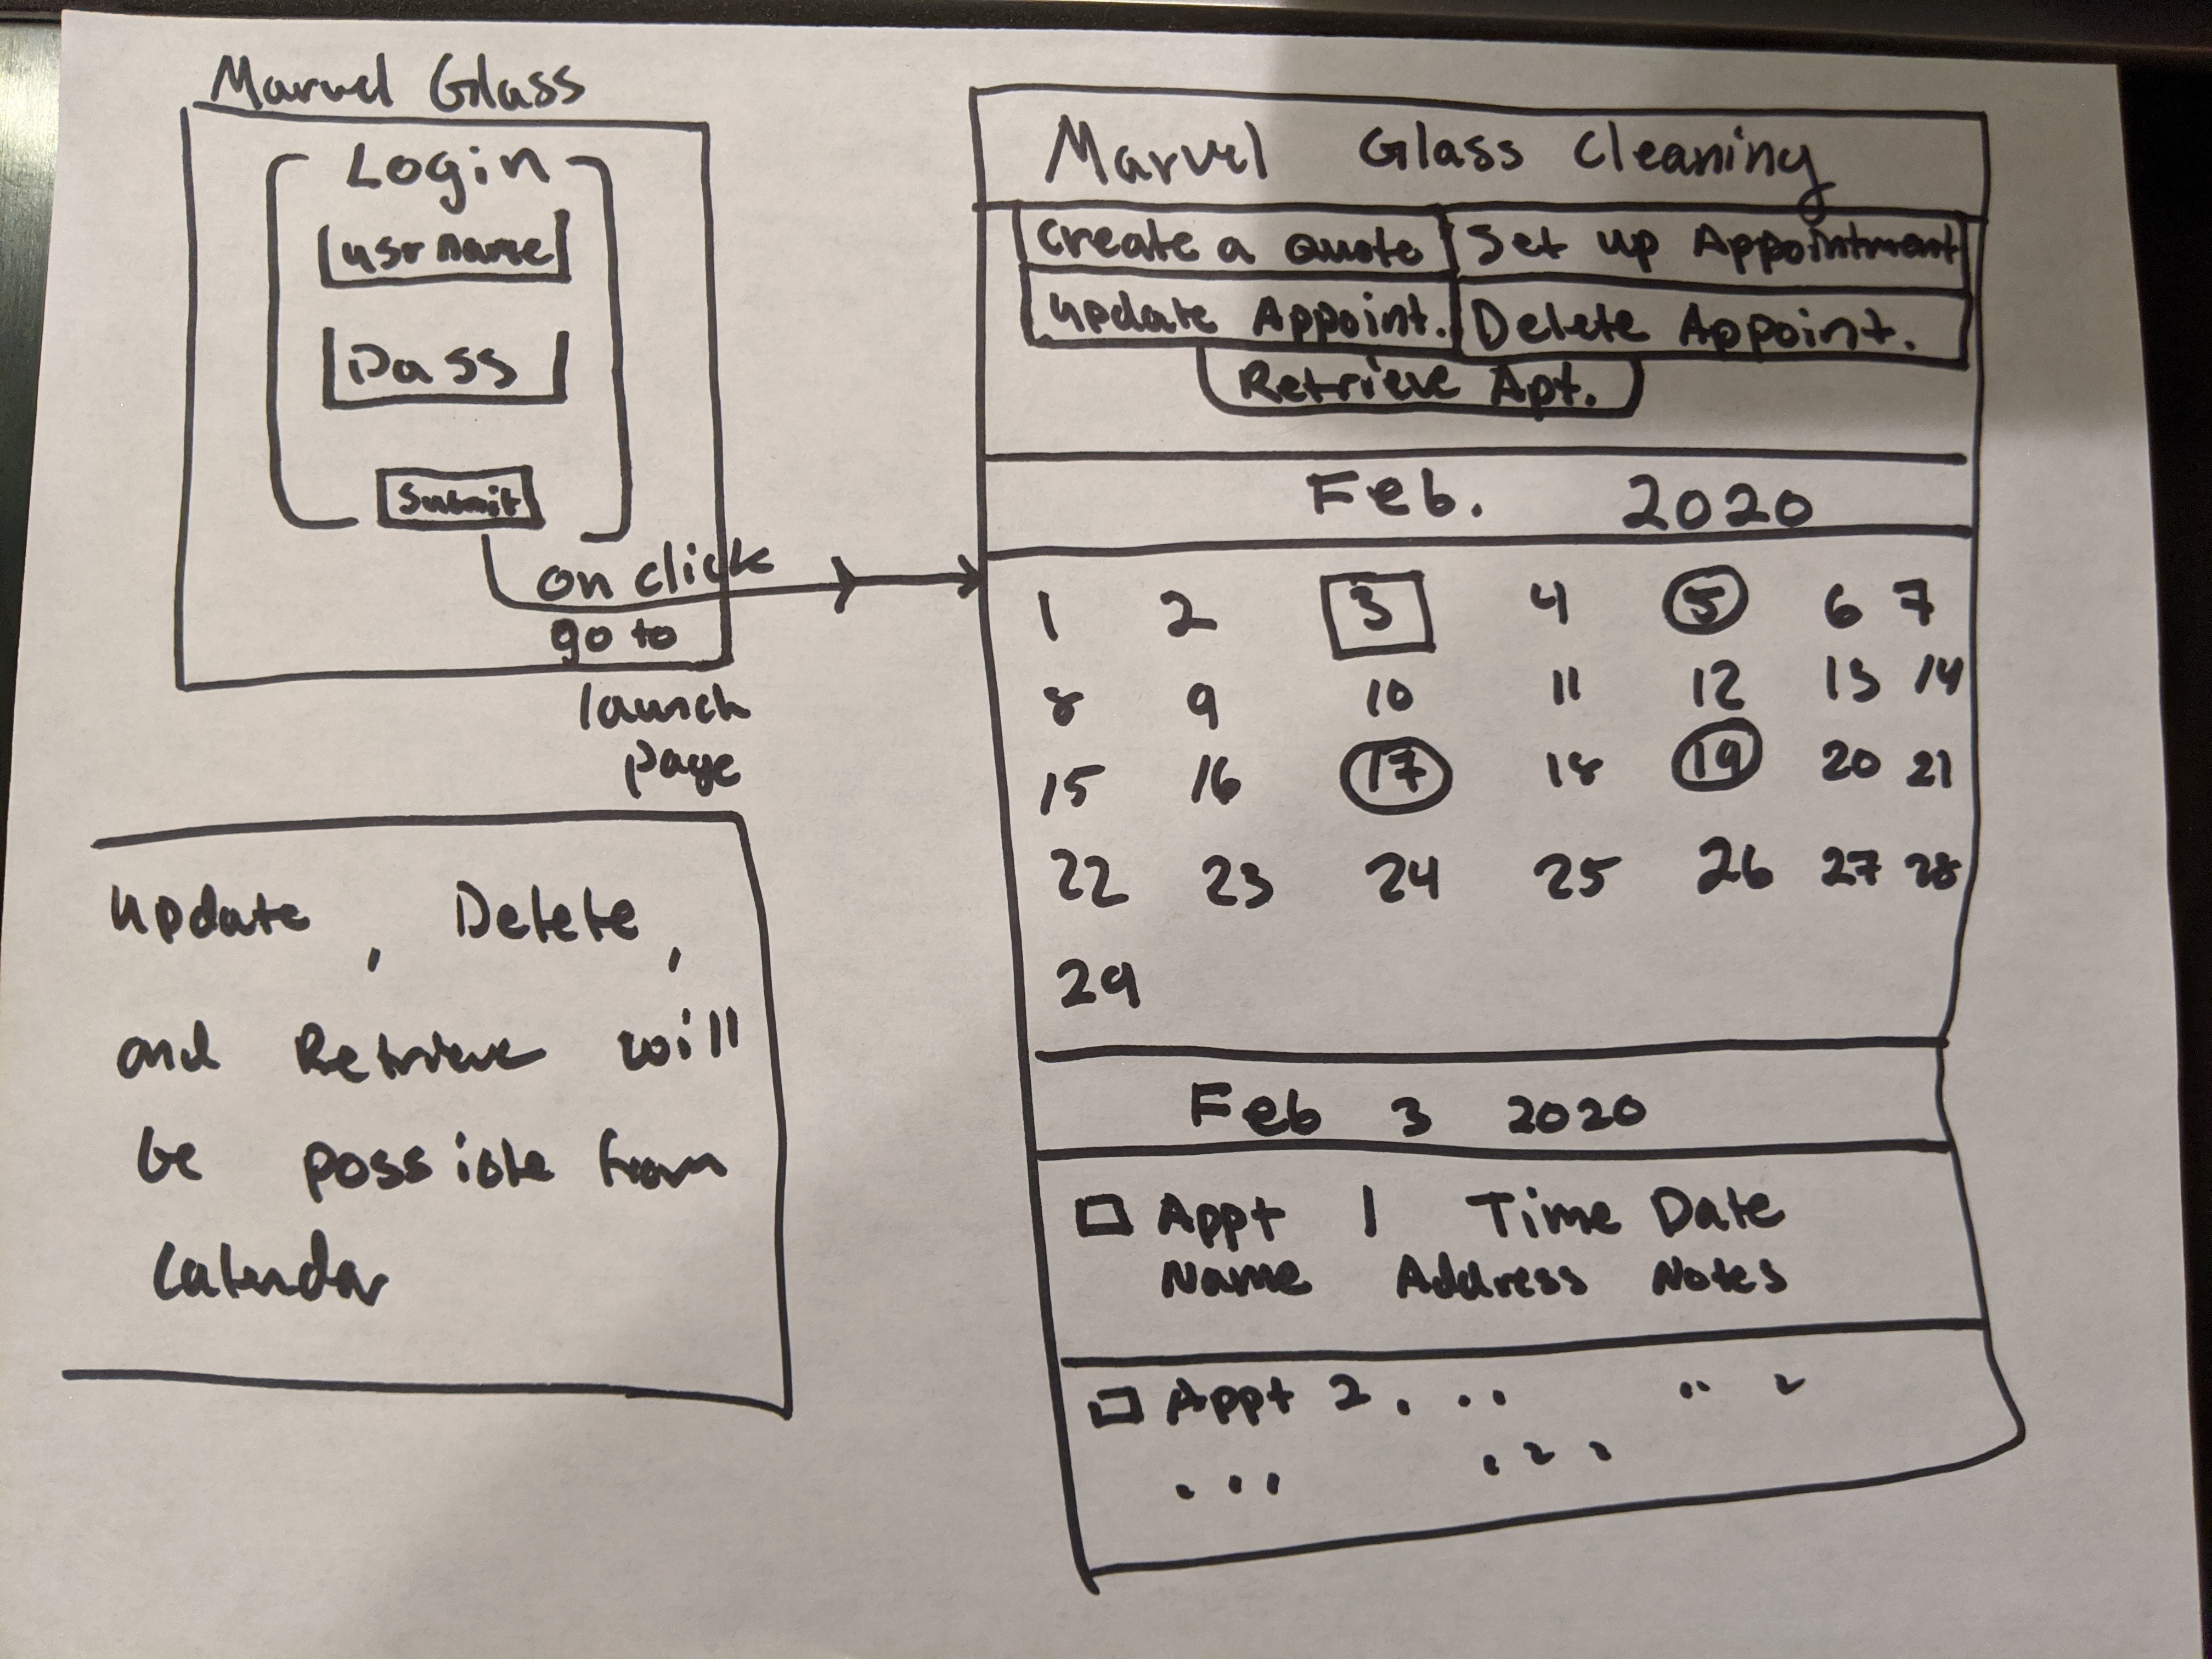 Marvel Glass
Login
usrname
Pass
Submit
on click
go to
launch
page
Update, Delete,
and Retrieve will
be possible from
Calendar
Marvel Glass Cleaning
Create a Quote Set up Appointment
Update Appoint. Delete Appoint.
Retrieve Apt.
Feb. 2020
1 2 3 4 5 6 7
8 9 10 11 12 13 14
15 16 17 18 19 20 21
22 23 24 25 26 27 28
29
Feb 3 2020
Appt 1 Time Date
Name Address Notes
Appt 2 . . .
. . .